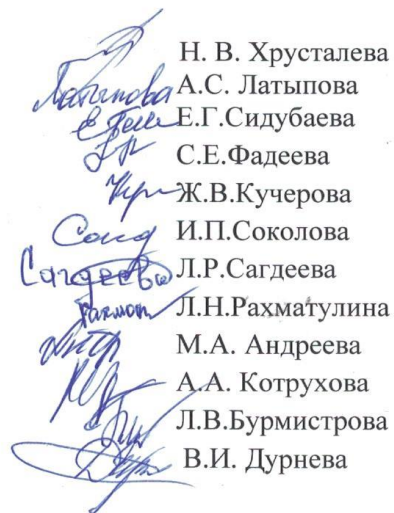 Н. В. Хрусталева
Латыпова А.С. Латыпова
Е.Г.Сидубаева
С.Е.Фадеева
Ж.В.Кучерова
И.П.Соколова
Сагдеева Л.Р.Сагдеева
Л.Н.Рахматулина
М.А. Андреева
А.А. Котрухова
Л.В.Бурмистрова
В.И. Дурнева